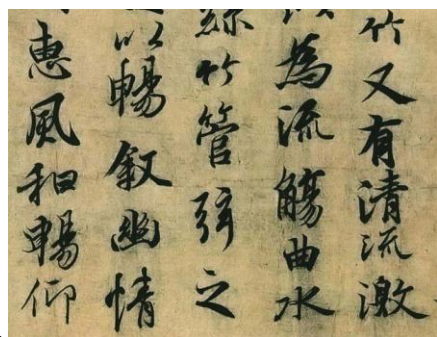 竹又有清流激
為流觴曲水
絲竹管弦之
以暢叙幽情
惠風和暢仰